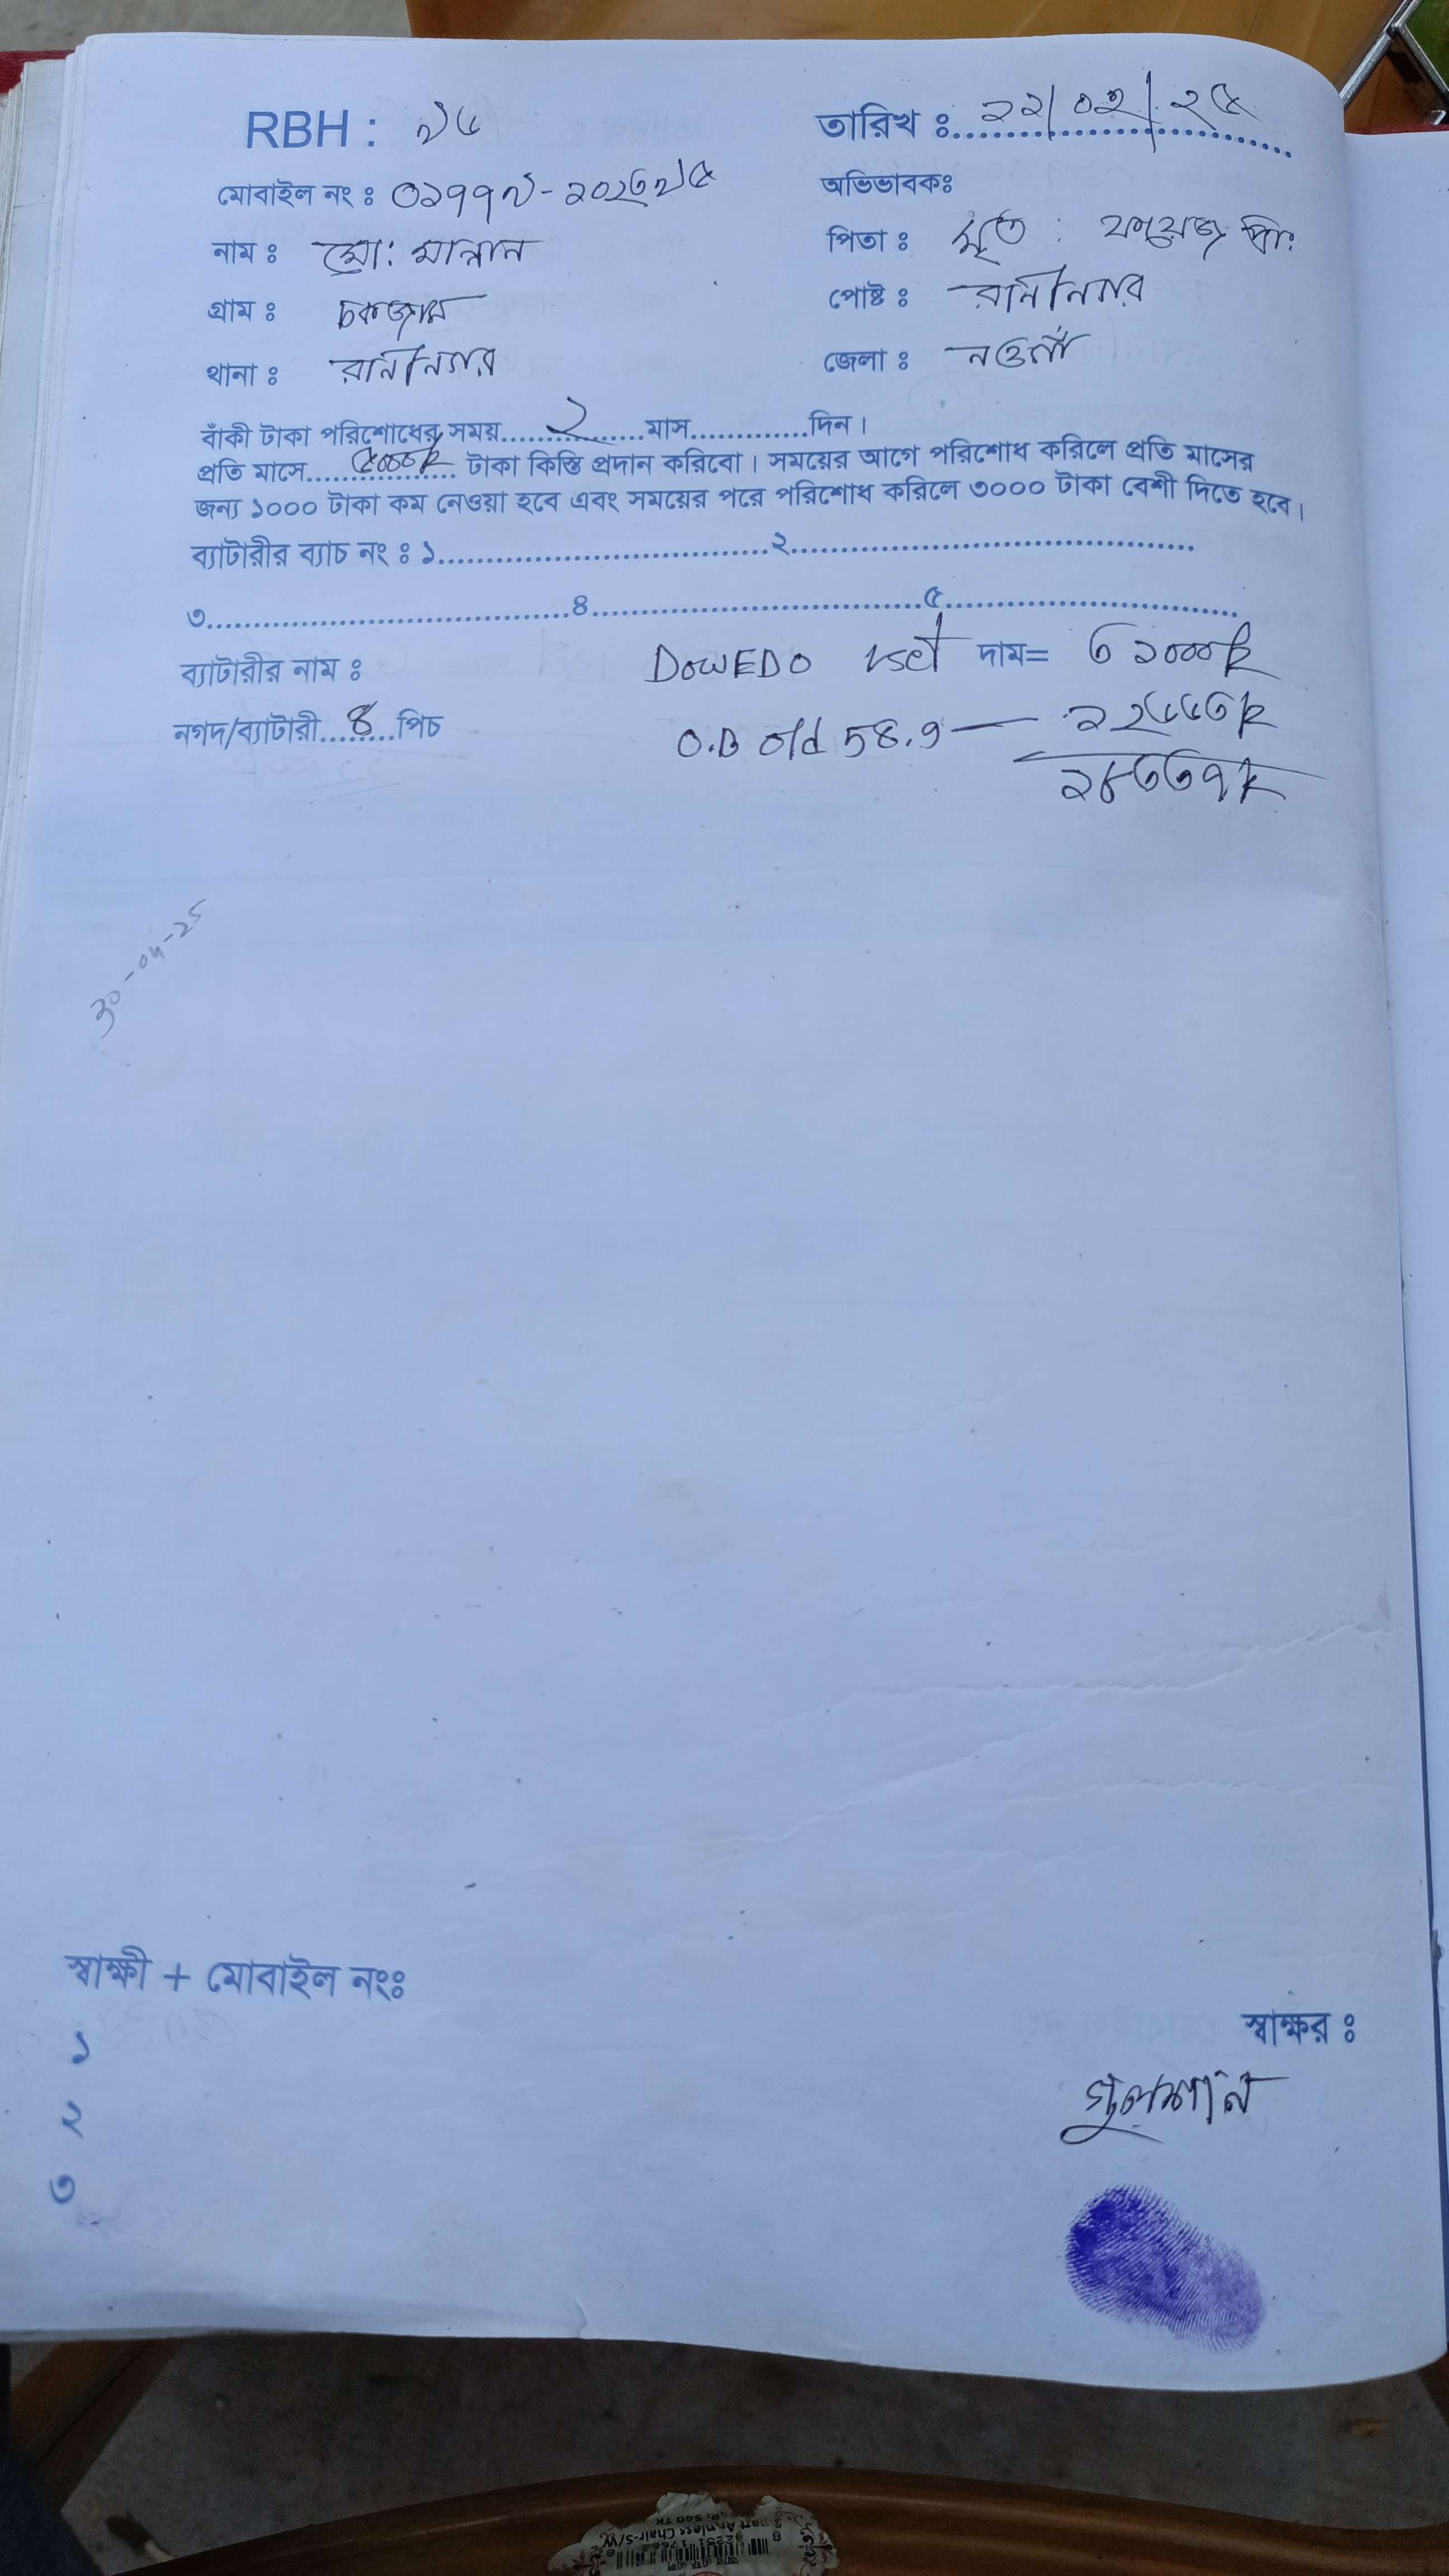 RBH : ৯৬
তারিখ ঃ ২২/০২/২৫
মোবাইল নং ঃ ০১৭৭৯-২০২৩৯৫
অভিভাবকঃ
নাম ঃ মো: মান্নান
পিতা ঃ মৃত :
গ্রাম ঃ চকজান
পোষ্ট ঃ রানীনগর
থানা ঃ রানীনগর
জেলা ঃ নওগাঁ
বাঁকী টাকা পরিশোধের সময়......২......মাস..............দিন।
প্রতি মাসে......৫০০০৳...... টাকা কিস্তি প্রদান করিবো। সময়ের আগে পরিশোধ করিলে প্রতি মাসের
জন্য ১০০০ টাকা কম নেওয়া হবে এবং সময়ের পরে পরিশোধ করিলে ৩০০০ টাকা বেশী দিতে হবে।
ব্যাটারীর ব্যাচ নং ঃ ১........................................২........................................
৩........................................৪........................................৫........................................
ব্যাটারীর নাম ঃ DOWEDO 1set দাম= ৫১০০০৳
নগদ/ব্যাটারী...৪...পিচ
O.B old 58.9 — ২২৬৬৩৳
২৮৩৩৭৳
30-04-25
স্বাক্ষী + মোবাইল নংঃ
স্বাক্ষর ঃ
১
২
৩
গুলশান